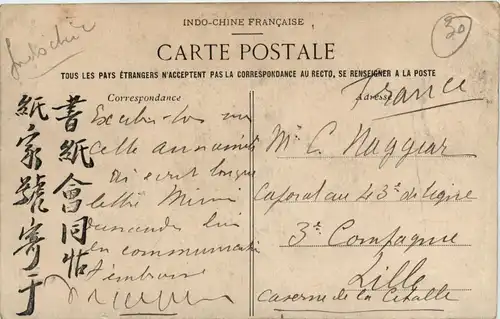 Indochine
20
INDO-CHINE FRANÇAISE
CARTE POSTALE
TOUS LES PAYS ÉTRANGERS N'ACCEPTENT PAS LA CORRESPONDANCE AU RECTO, SE RENSEIGNER A LA POSTE
Correspondance
書紙會同帖
紙家號寄于
cette
ai écrit longue
lettre Mimi
demandes lui
en communication
t'embrasse
Adresse
France
Mr C. Naggiar
Caporal au 43e de ligne
3e Compagnie
Lille
Caserne de la Citadelle